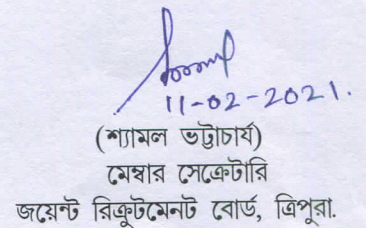 11-02-2021.
(শ্যামল ভট্টাচার্য)
মেম্বার সেক্রেটারি
জয়েন্ট রিক্রুটমেনট বোর্ড, ত্রিপুরা.